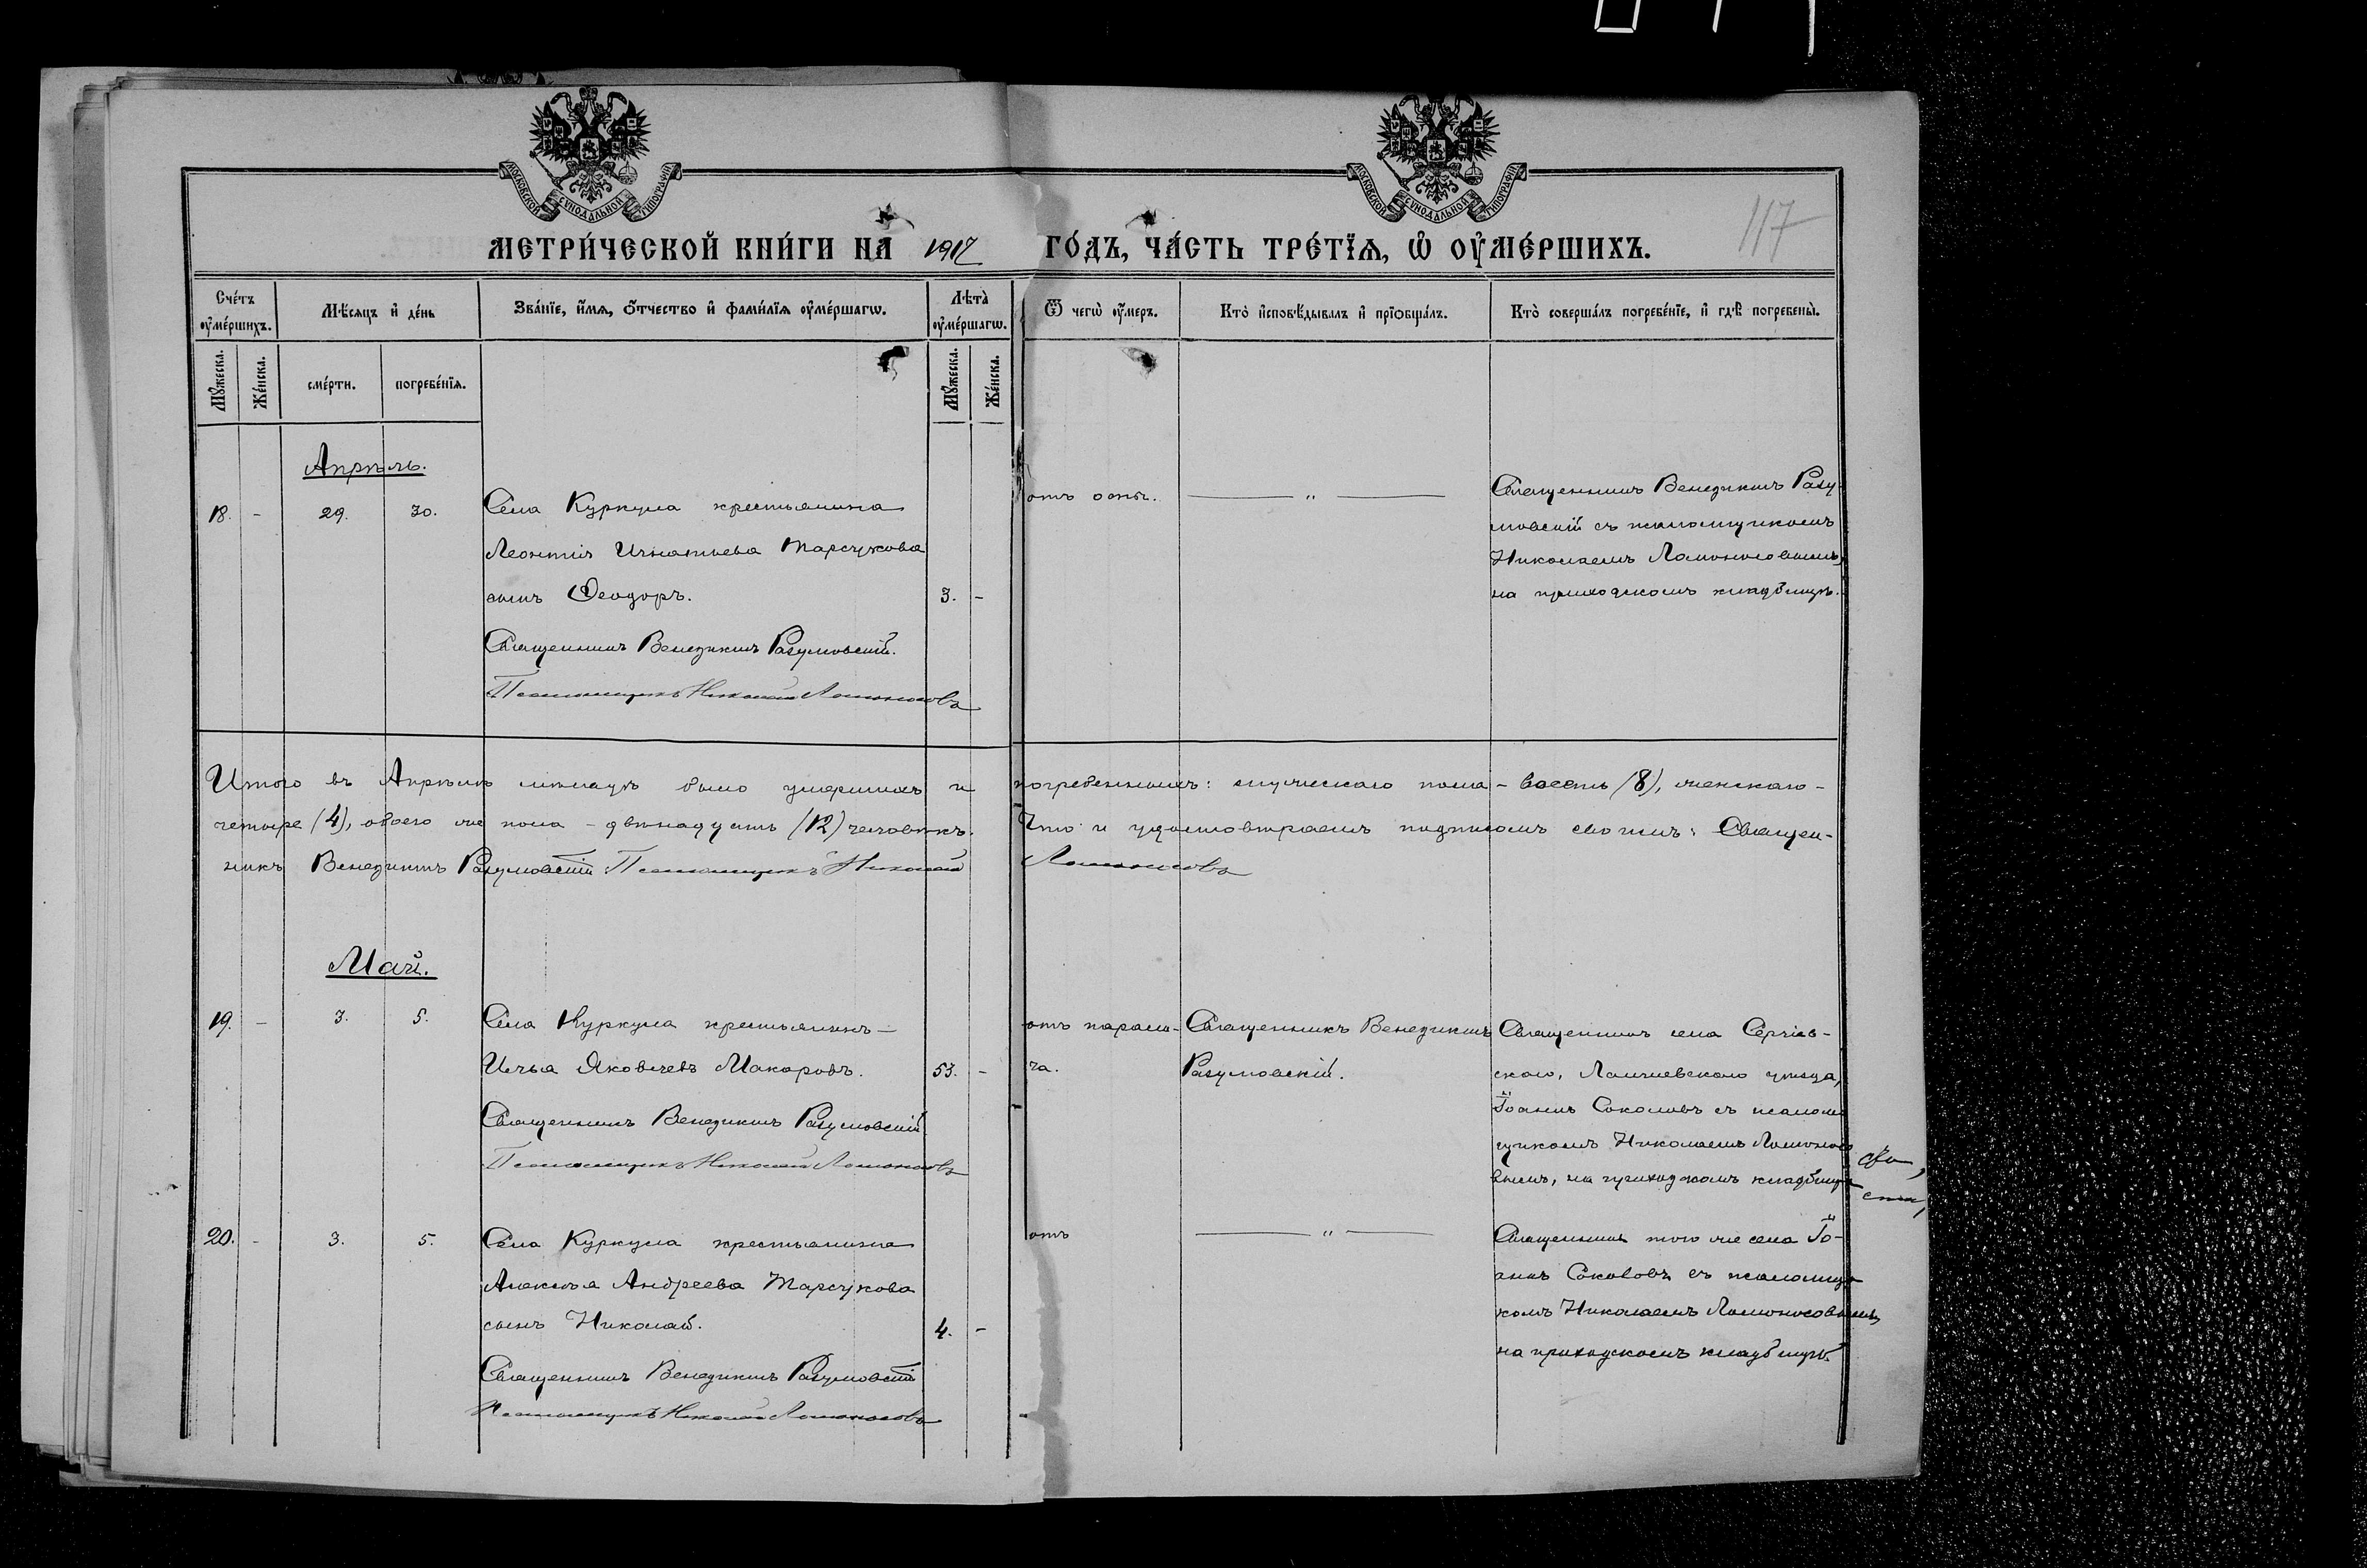 МОСКОВСКОЙ СУНОДАЛЬНОЙ ТИПОГРАФІИ
МОСКОВСКОЙ СУНОДАЛЬНОЙ ТИПОГРАФІИ
117
МЕТРИ́ЧЕСКОЙ КНИ́ГИ НА 1917 ГО́ДЪ, ЧА́СТЬ ТРЕ́ТЇѦ, Ѡ҆ ОУ҆МЕ́РШИХЪ.
Сче́тъ оу҆ме́ршихъ.
Мѣ́сяцъ и҆ де́нь
Зва́нїе, и҆́мѧ, ѻ҆́тчество и҆ фами́лїѧ оу҆ме́ршагѡ.
Лѣта̀ оу҆ме́ршагѡ.
Ѿ чегѡ̀ оу҆́меръ.
Кто̀ и҆сповѣ́дывалъ и҆ прїобща́лъ.
Кто̀ соверша́лъ погребе́нїе, и҆ гдѣ̀ погребены̀.
Мꙋ́жеска.
Же́нска.
сме́рти.
погребе́нїѧ.
Мꙋ́жеска.
Же́нска.
Апрѣль.
18. - 29. 30. Села Куркула крестьянина
Леонтія Игнатьева Тарсукова
сынъ Ѳеодоръ. 3. -
Священникъ Венедиктъ Разумовскій.
Псаломщикъ Николай Ломоносовъ
отъ оспы.
— " —
Священникъ Венедиктъ Разу-
мовскій съ псаломщикомъ
Николаемъ Ломоносовымъ,
на приходскомъ кладбищѣ.
Итого въ Апрѣлѣ мѣсяцѣ было умершихъ и погребенныхъ: мужескаго пола - восемь (8), женскаго -
четыре (4), обоего же пола - двѣнадцать (12) человѣкъ. Что и удостовѣряемъ подписомъ своимъ: Священ-
никъ Венедиктъ Разумовскій Псаломщикъ Николай Ломоносовъ
Май.
19. - 3. 5. Села Куркула крестьянинъ -
Илья Яковлевъ Макаровъ. 53. -
Священникъ Венедиктъ Разумовскій
Псаломщикъ Николай Ломоносовъ
отъ парали-
ча.
Священникъ Венедиктъ
Разумовскій.
Священникъ села Сергіев-
скаго, Лаишевскаго уѣзда,
Іоаннъ Соколовъ съ псалом-
щикомъ Николаемъ Ломоносо-
вымъ, на приходскомъ кладбищѣ
20. - 3. 5. Села Куркула крестьянина
Алексѣя Андреева Тарсукова
сынъ Николай. 4. -
Священникъ Венедиктъ Разумовскій
Псаломщикъ Николай Ломоносовъ
отъ
— " —
Священникъ того же села Іо-
аннъ Соколовъ съ псаломщи-
комъ Николаемъ Ломоносовымъ,
на приходскомъ кладбищѣ.